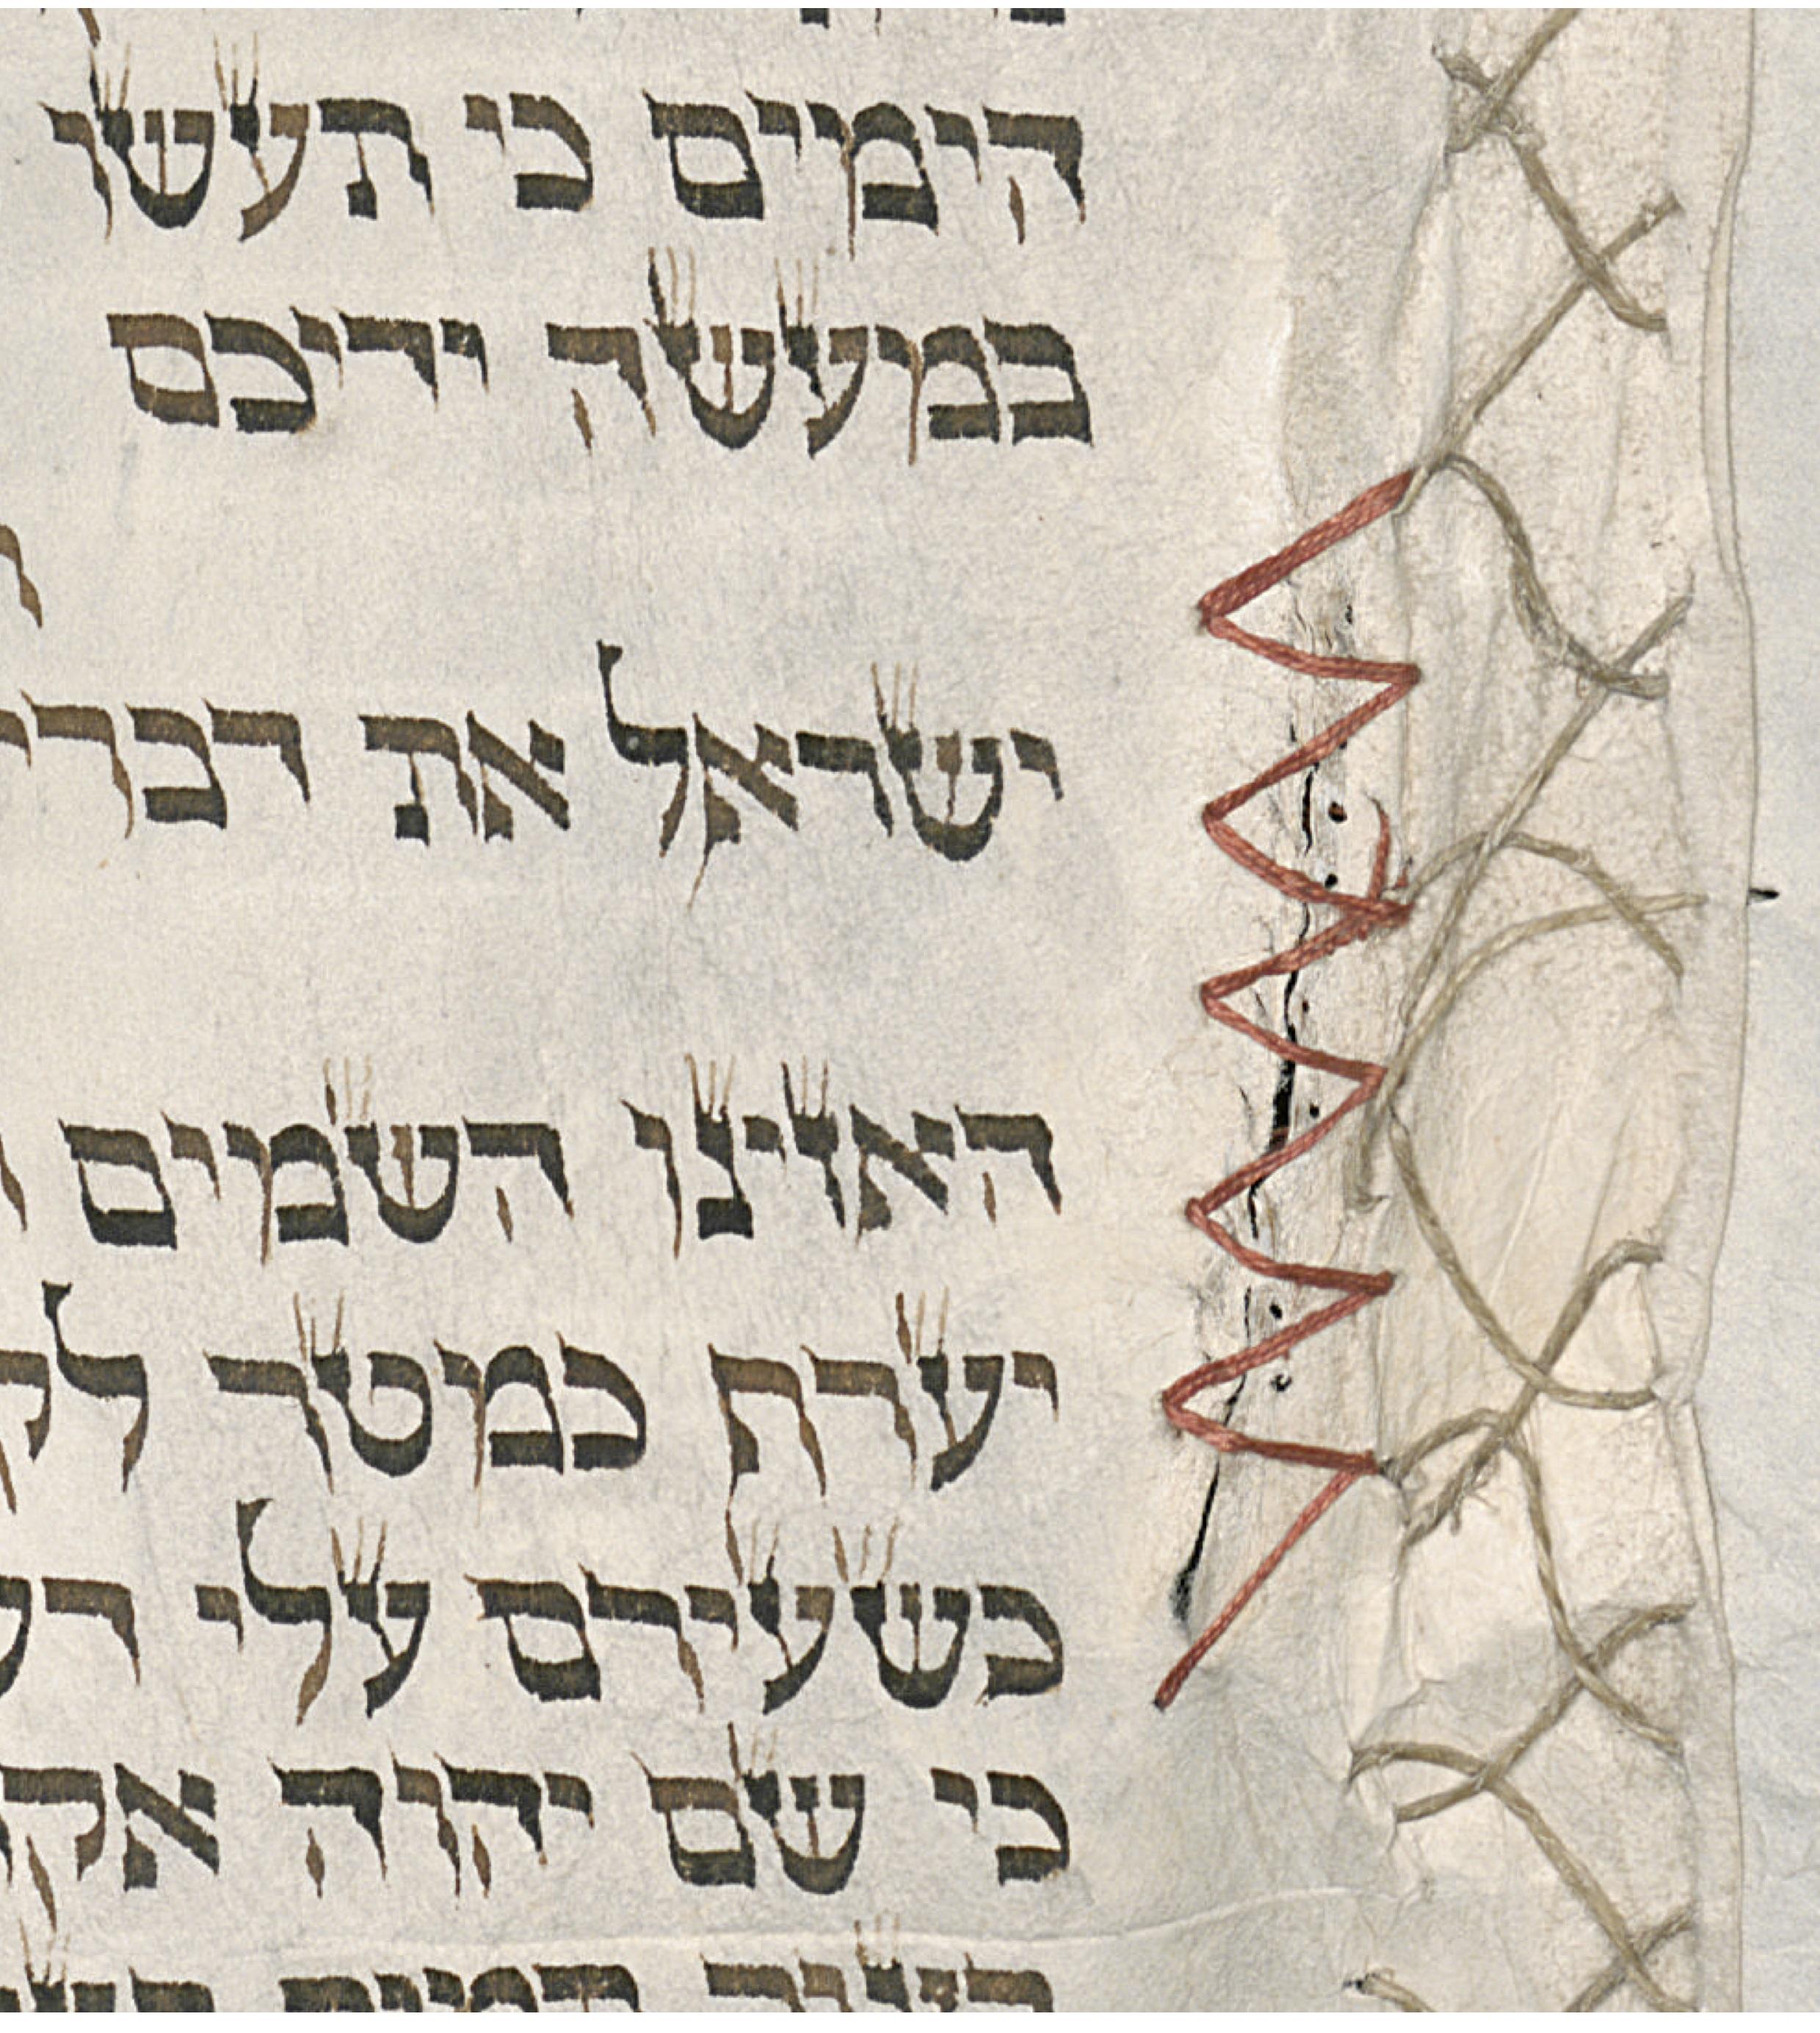 הימים כי תעשו
במעשה ידיכם
ישראל את דברי
האזינו השמים
יערף כמטר לק
כשעירם עלי
כי שם יהוה אק